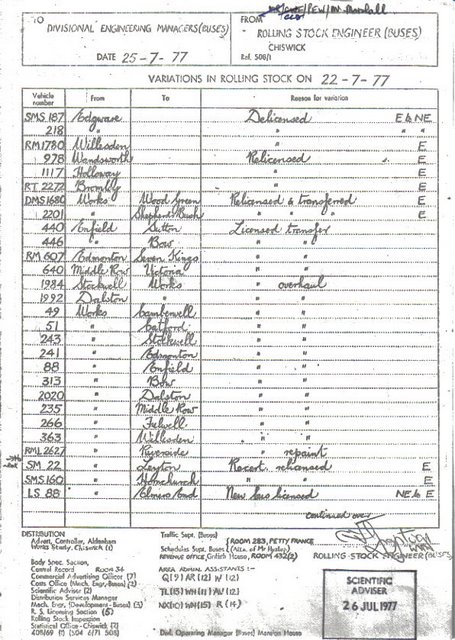 TO
DIVISIONAL ENGINEERING MANAGERS (BUSES)
DATE 25-7-77
FROM
ROLLING STOCK ENGINEER (BUSES)
CHISWICK
Ref. 508/1
VARIATIONS IN ROLLING STOCK ON 22-7-77
Vehicle number From To Reason for variation
SMS 187 Edgware Delicensed E & NE
218 " " " "
RM 1780 Willesden " E
978 Wandsworth Relicensed E
1117 Holloway " E
RT 2272 Bromley " E
DMS 1680 Works Wood Green Relicensed & transferred E
2201 " Shepherds Bush " " E
440 Enfield Sutton Licensed transfer
446 " Bow " "
RM 607 Edmonton Seven Kings " "
640 Middle Row Victoria " "
1984 Stockwell Works " overhaul
1992 Dalston " " "
49 Works Camberwell " "
51 " Catford " "
243 " Stockwell " "
241 " Edmonton " "
88 " Enfield " "
313 " Bow " "
2020 " Dalston " "
235 " Middle Row " "
266 " Fulwell " "
363 " Willesden " "
RML 2627 " Riverside " repaint
SM 22 " Leyton Recert. relicensed E
SMS 160 " Hornchurch " " E
LS 88 " Elmers End New bus licensed NE & E
continued over
DISTRIBUTION
Advert. Controller, Aldenham
Works Study, Chiswick (1)
Body Spec. Section,
Control Record Room 34
Commercial Advertising Officer (7)
Cost Office (Mech. Engr.-Buses) (2)
Scientific Adviser (2)
Distribution Services Manager
Mech. Engr. (Development-Buses) (3)
R. S. Licensing Section (5)
Rolling Stock Inspection
Statistical Office - Chiswick (2)
Traffic Supt. (Buses) ROOM 283, PETTY FRANCE
Schedules Supt. Buses (Attn. of Mr Hyslop)
REVENUE OFFICE, Griffith House, ROOM 432(2)
AREA ADMINL. ASSISTANTS :-
Divl. Operating Manager (Buses) Mansion House
ROLLING STOCK ENGINEER (BUSES)
SCIENTIFIC
ADVISER
26 JUL 1977